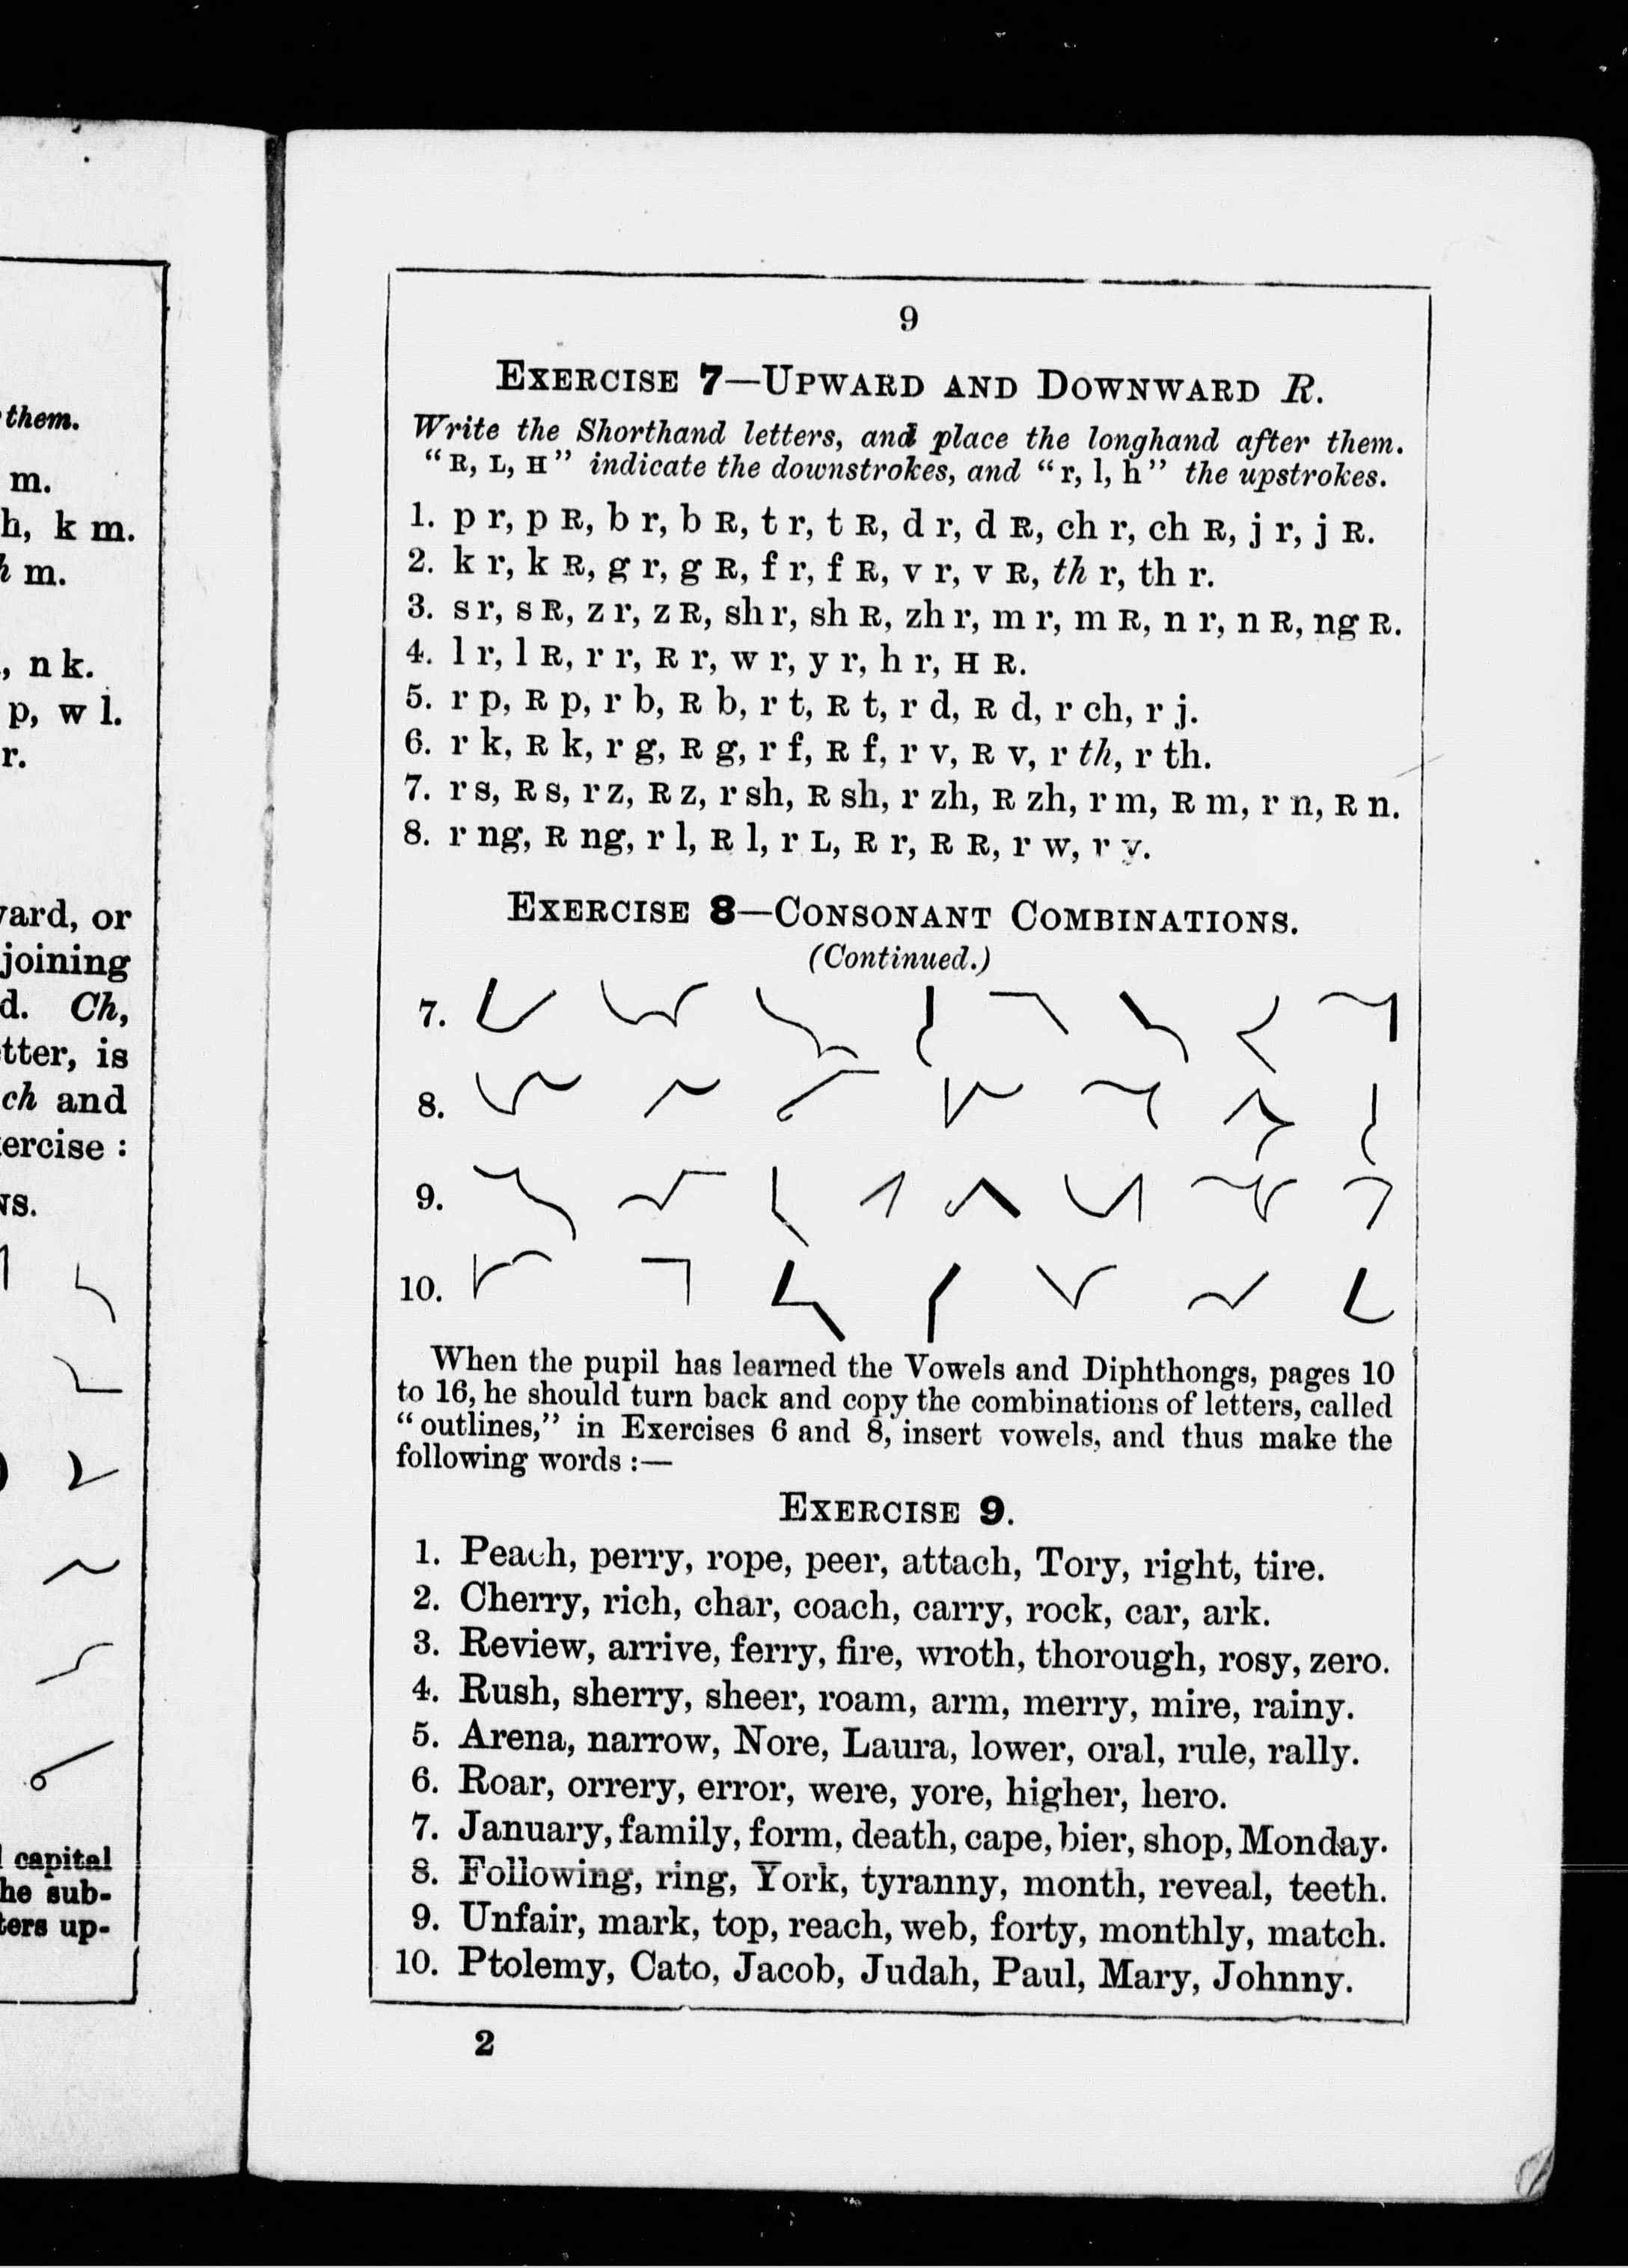 them.
m.
h, k m.
h m.
, n k.
p, w l.
r.
ward, or
joining
d. Ch,
tter, is
ch and
ercise :
NS.
capital
he sub-
ters up-
9
EXERCISE 7—UPWARD AND DOWNWARD R.
Write the Shorthand letters, and place the longhand after them.
“R, L, H” indicate the downstrokes, and “r, l, h” the upstrokes.
1. p r, p R, b r, b R, t r, t R, d r, d R, ch r, ch R, j r, j R.
2. k r, k R, g r, g R, f r, f R, v r, v R, th r, th r.
3. s r, s R, z r, z R, sh r, sh R, zh r, m r, m R, n r, n R, ng R.
4. l r, l R, r r, R r, w r, y r, h r, H R.
5. r p, R p, r b, R b, r t, R t, r d, R d, r ch, r j.
6. r k, R k, r g, R g, r f, R f, r v, R v, r th, r th.
7. r s, R s, r z, R z, r sh, R sh, r zh, R zh, r m, R m, r n, R n.
8. r ng, R ng, r l, R l, r L, R r, R R, r w, r y.
EXERCISE 8—CONSONANT COMBINATIONS.
(Continued.)
7.
8.
9.
10.
When the pupil has learned the Vowels and Diphthongs, pages 10
to 16, he should turn back and copy the combinations of letters, called
“outlines,” in Exercises 6 and 8, insert vowels, and thus make the
following words :—
EXERCISE 9.
1. Peach, perry, rope, peer, attach, Tory, right, tire.
2. Cherry, rich, char, coach, carry, rock, car, ark.
3. Review, arrive, ferry, fire, wroth, thorough, rosy, zero.
4. Rush, sherry, sheer, roam, arm, merry, mire, rainy.
5. Arena, narrow, Nore, Laura, lower, oral, rule, rally.
6. Roar, orrery, error, were, yore, higher, hero.
7. January, family, form, death, cape, bier, shop, Monday.
8. Following, ring, York, tyranny, month, reveal, teeth.
9. Unfair, mark, top, reach, web, forty, monthly, match.
10. Ptolemy, Cato, Jacob, Judah, Paul, Mary, Johnny.
2